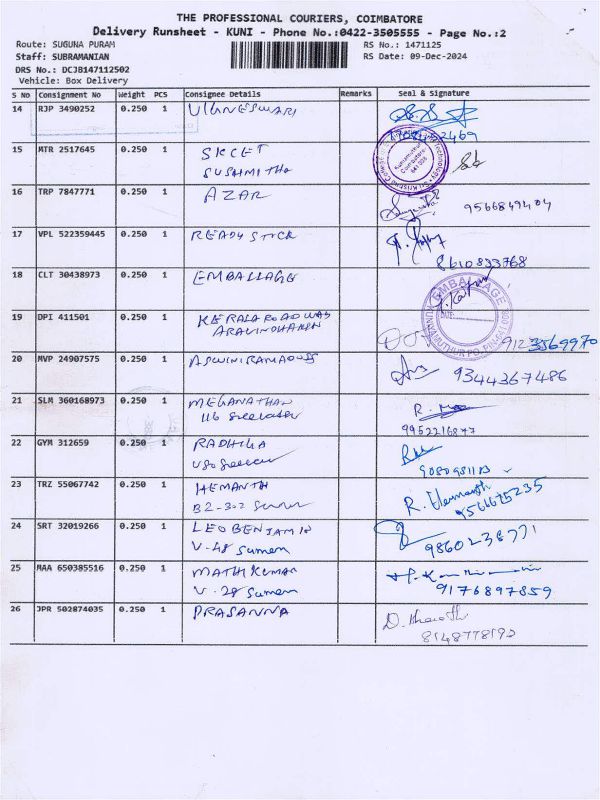 THE PROFESSIONAL COURIERS, COIMBATORE
Delivery Runsheet - KUNI - Phone No.:0422-3505555 - Page No.:2
Route: SUGUNA PURAM RS No.: 1471125
Staff: SUBRAMANIAN RS Date: 09-Dec-2024
DRS No.: DCJB147112502
Vehicle: Box Delivery
S No Consignment No Weight PCS Consignee Details Remarks Seal & Signature
14 RJP 3490252 0.250 1 VIGNESWARI
15 MTR 2517645 0.250 1 SKCET
SUSHMITHA
16 TRP 7847771 0.250 1 AZAR 9566849404
17 VPL 522359445 0.250 1 READY STICK
8610833768
18 CLT 30438973 0.250 1 EMBALLAGE
EMBALLAGE
DATE:
19 DPI 411501 0.250 1 KERALA ROADWAYS
20 MVP 24907575 0.250 1
9344367486
21 SLM 360168973 0.250 1 MEGANATHAN
116
9952216847
22 GYM 312659 0.250 1 RADHIKA
23 TRZ 55067742 0.250 1 HEMANTH R. Hemanth
B2-302 9566675235
24 SRT 32019266 0.250 1 LEO BENJAMIN
V-48 Sumeru
25 MAA 650385516 0.250 1 MATHI KUMAR
V-28 Sumeru 9176897859
26 JPR 502874035 0.250 1 PRASANNA D. Bharath